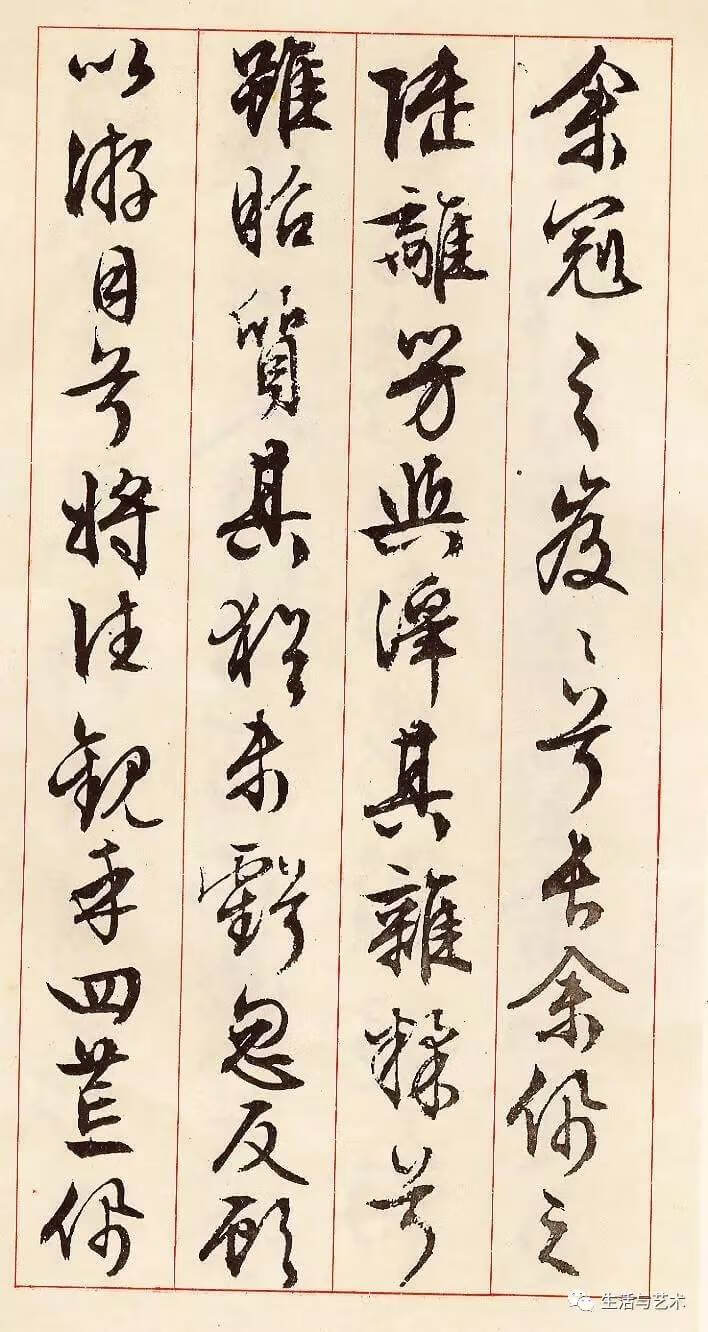 余冠之岌々兮長余佩之
陸離芳與澤其雜糅兮
雖昭質其猶未虧忽反顧
以游目兮將往觀乎四荒佩
生活与艺术